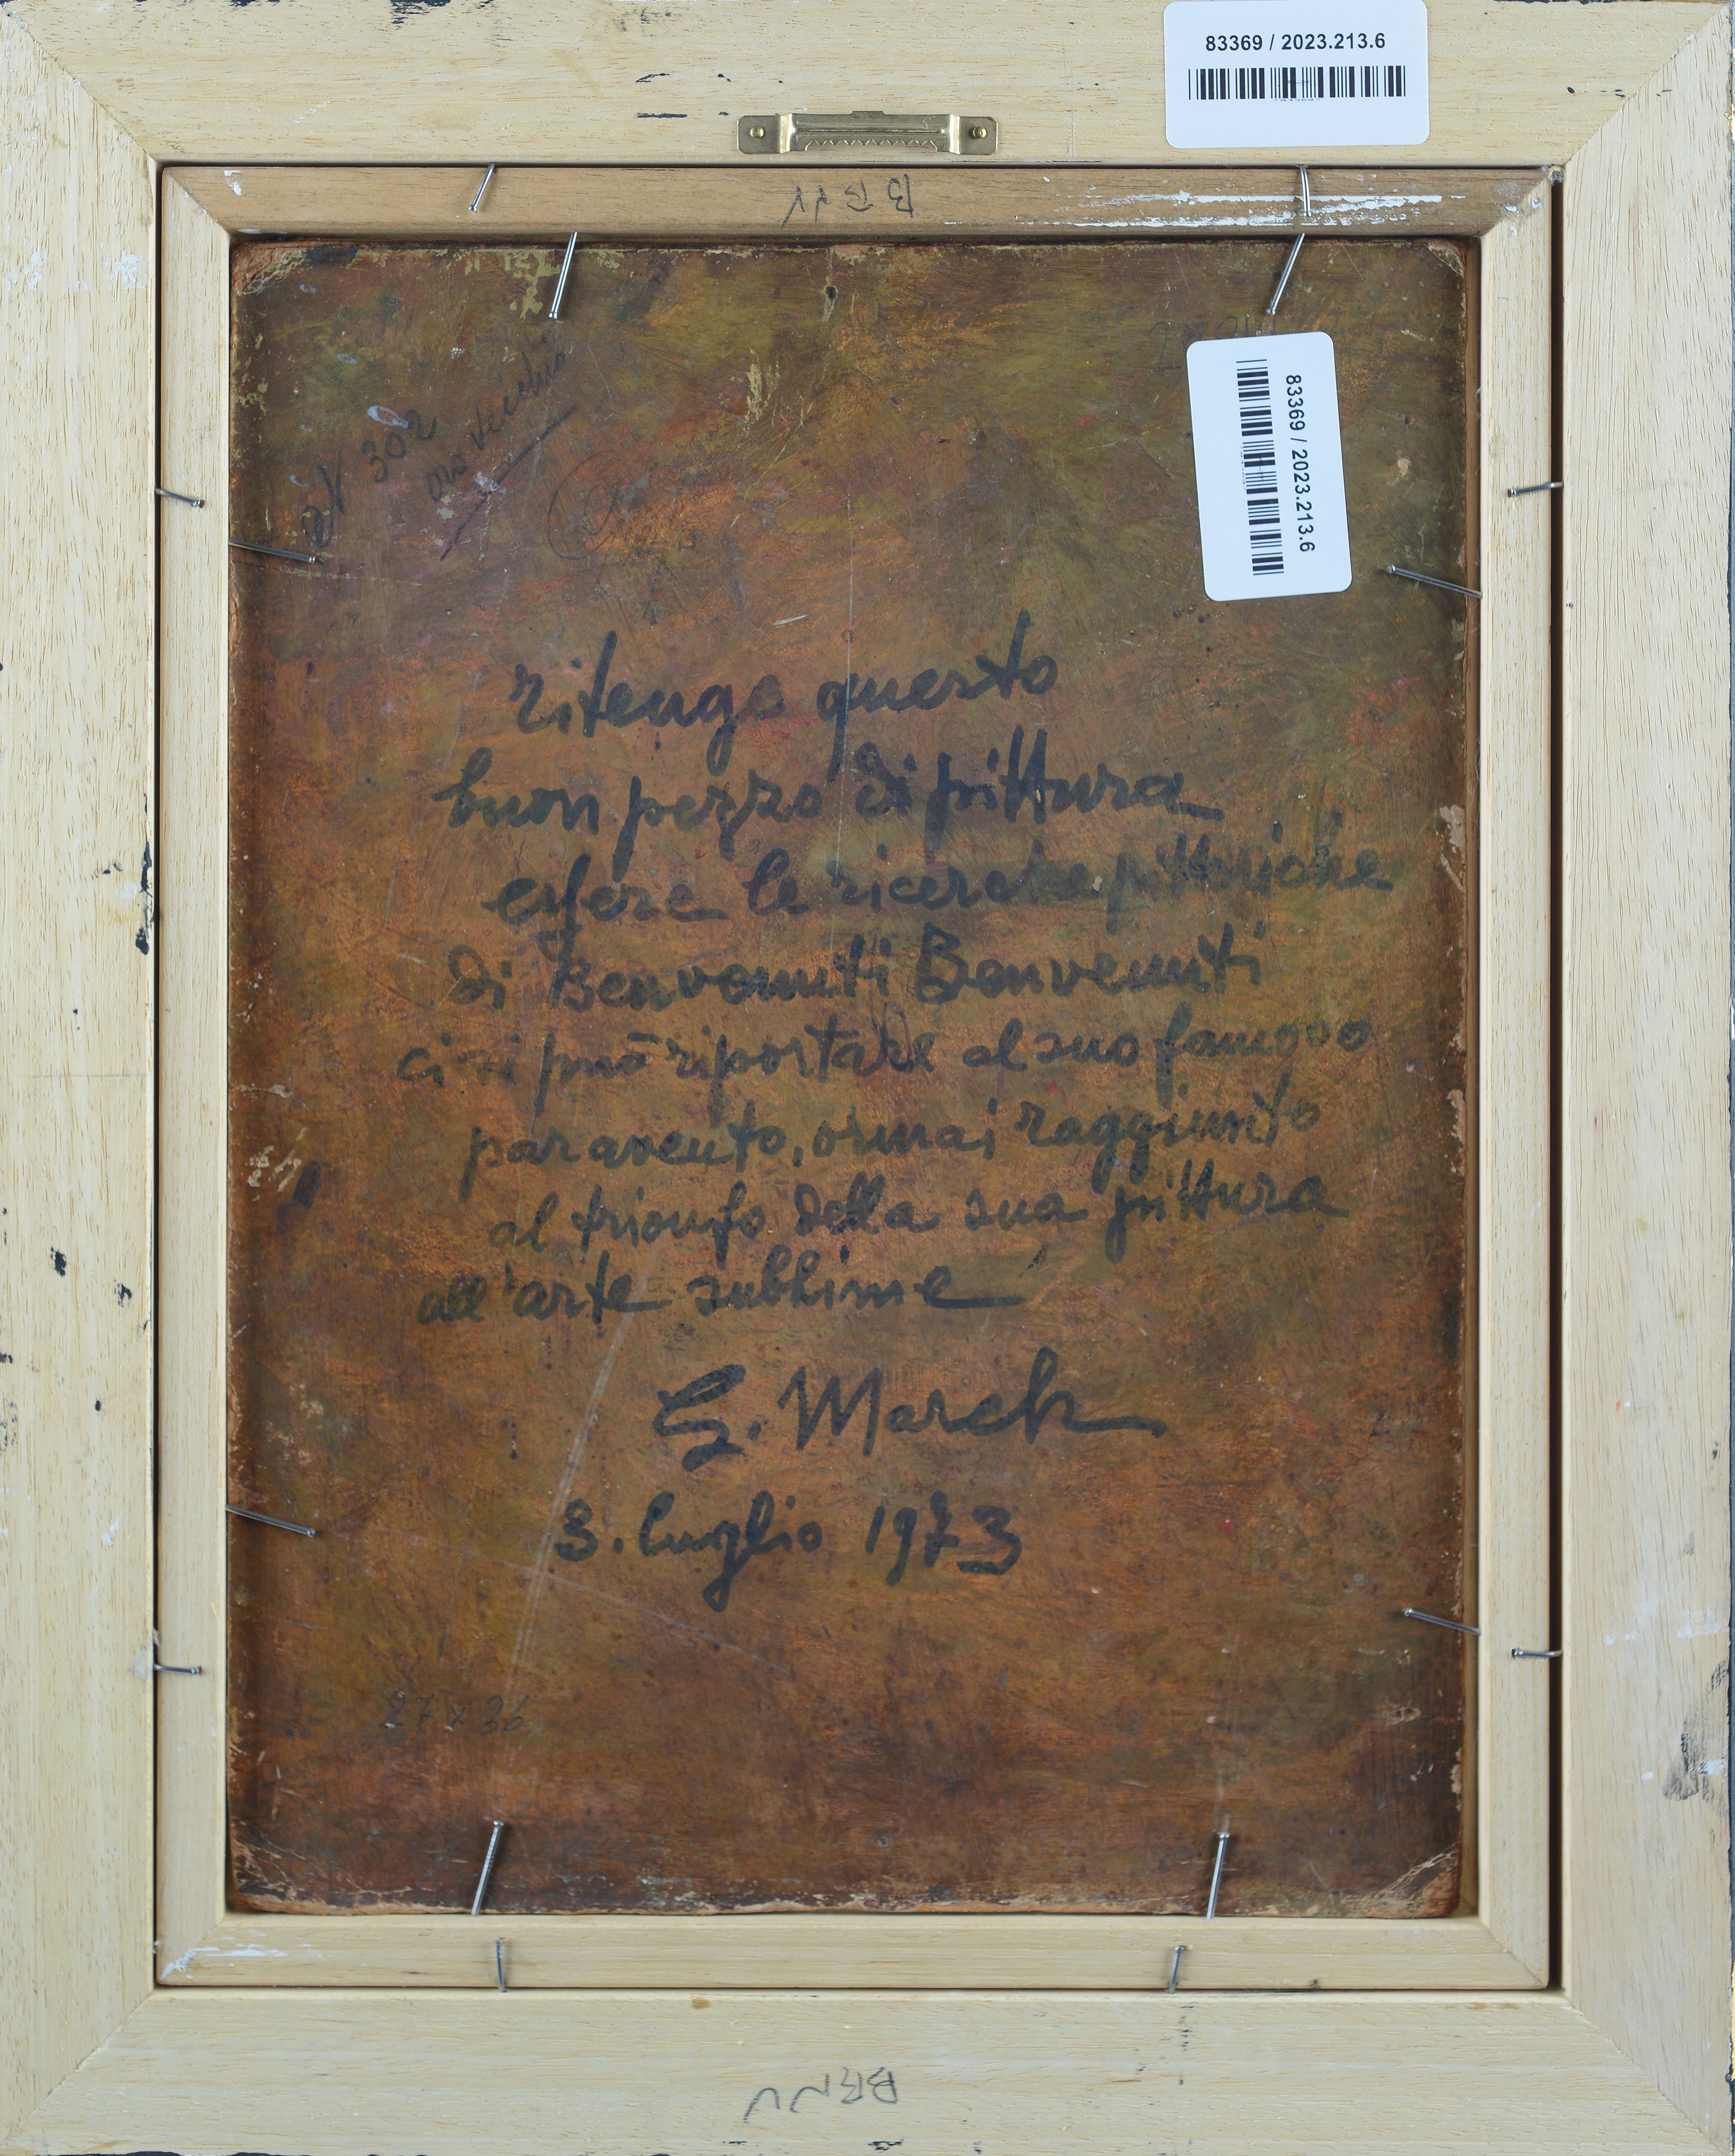 83369 / 2023.213.6
BEN
83369 / 2023.213.6
N 302
oro vecchio
ritengo questo
buon pezzo di pittura
essere le ricerche pittoriche
di Benvenuti Benvenuti
ci si può riportare al suo famoso
paravento, ormai raggiunto
al trionfo della sua pittura
all'arte sublime
G. March
3. luglio 1973
27 x 36
BENV